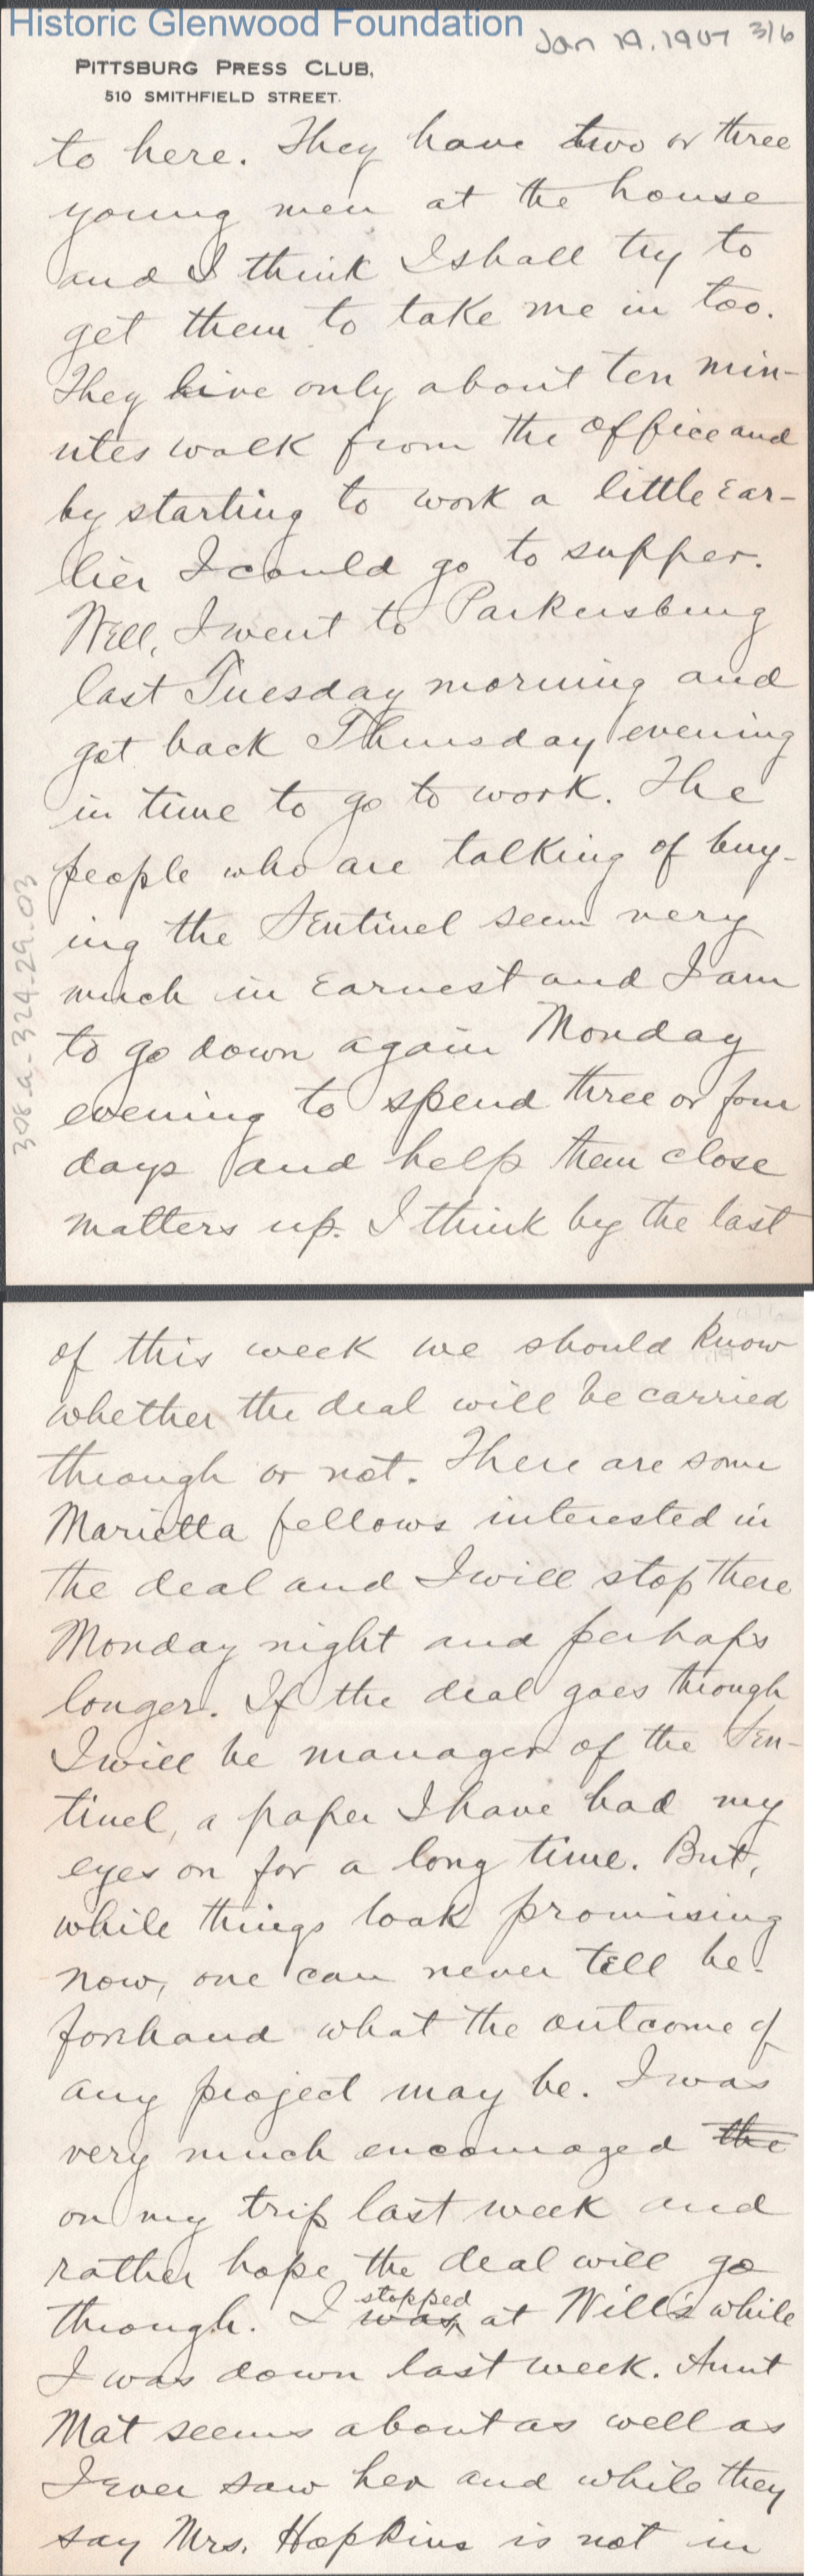 Historic Glenwood Foundation
Jan 19, 1907 3/6
PITTSBURG PRESS CLUB,
510 SMITHFIELD STREET.
to here. They have two or three
young men at the house
and I think I shall try to
get them to take me in too.
They live only about ten min-
utes walk from the office and
by starting to work a little ear-
lier I could go to supper.
Well, I went to Parkersburg
last Tuesday morning and
got back Thursday evening
in time to go to work. The
people who are talking of buy-
ing the Sentinel seem very
much in earnest and I am
to go down again Monday
evening to spend three or four
days and help them close
matters up. I think by the last
398.a-324-29.03
of this week we should know
whether the deal will be carried
through or not. There are some
Marietta fellows interested in
the deal and I will stop there
Monday night and perhaps
longer. If the deal goes through
I will be manager of the Sen-
tinel, a paper I have had my
eyes on for a long time. But,
while things look promising
now, one can never tell be-
forehand what the outcome of
any project may be. I was
very much encouraged the
on my trip last week and
rather hope the deal will go
through. I was stopped at Will's while
I was down last week. Aunt
Mat seems about as well as
I ever saw her and while they
say Mrs. Hopkins is not in